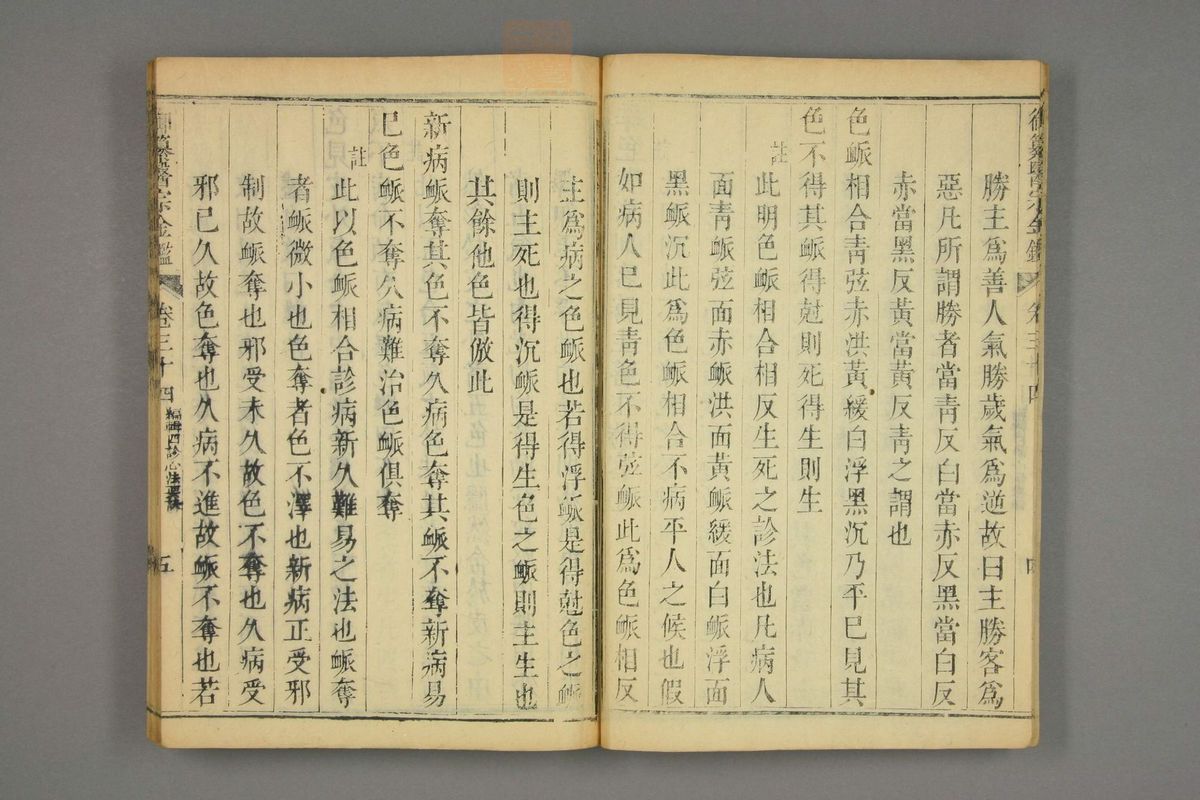 御纂醫宗金鑑 卷三十四 四
勝主爲善人氣勝歲氣爲逆故曰主勝客爲
惡凡所謂勝者當靑反白當赤反黑當白反
赤當黑反黃當黃反靑之謂也
色脈相合靑弦赤洪黃緩白浮黑沉乃平已見其
色不得其脈得尅則死得生則生
註
此明色脈相合相反生死之診法也凡病人
面靑脈弦面赤脈洪面黃脈緩面白脈浮面
黑脈沉此爲色脈相合不病平人之候也假
如病人已見靑色不得弦脈此爲色脈相反
主爲病之色脈也若得浮脈是得尅色之脈
則主死也得沉脈是得生色之脈則主生也
其餘他色皆倣此
新病脈奪其色不奪久病色奪其脈不奪新病易
已色脈不奪久病難治色脈俱奪
註
此以色脈相合診病新久難易之法也脈奪
者脈微小也色奪者色不澤也新病正受邪
制故脈奪也邪受未久故色不奪也久病受
邪已久故色奪也久病不進故脈不奪也若
御纂醫宗金鑑 卷三十四 編輯四診心法要訣 五